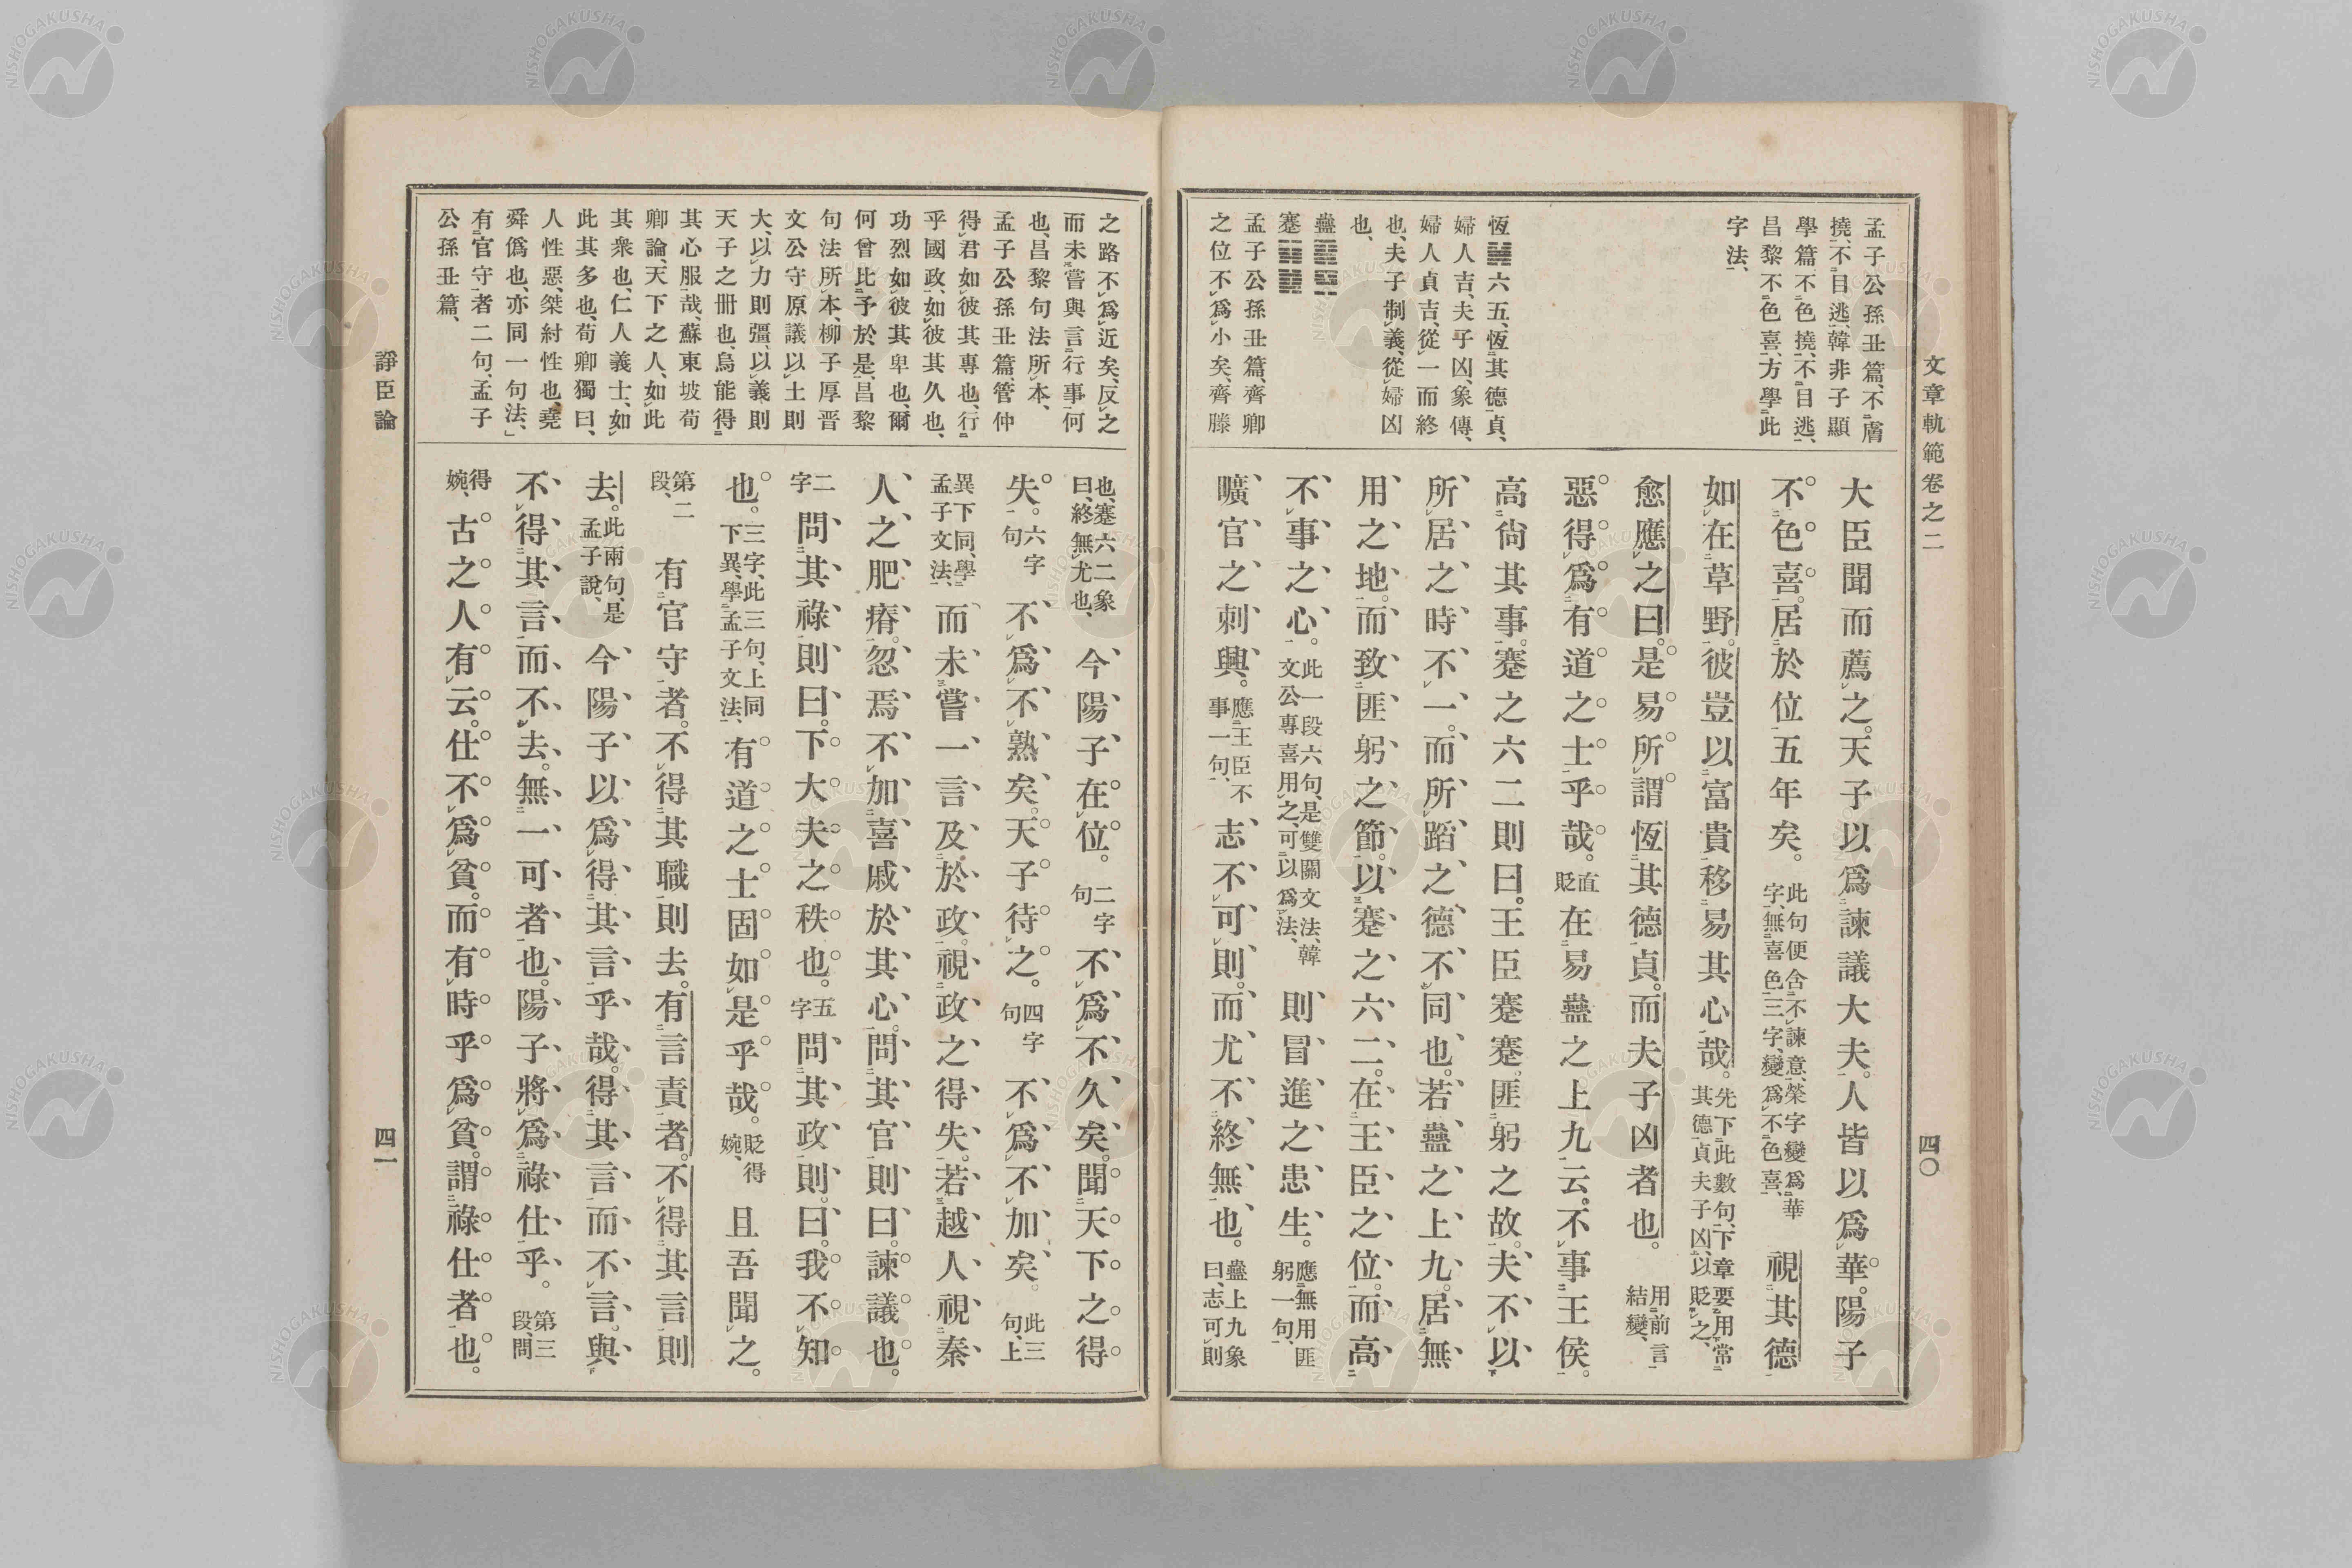 文章軌範卷之二
四〇
孟子公孫丑篇、不膚
撓、不目逃、韓非子顯
學篇、不色撓、不目逃、
昌黎不色喜、方學此
字法、
恆䷟六五、恆其德貞、
婦人吉、夫子凶、象傳、
婦人貞吉、從一而終
也、夫子制義、從婦凶
也、
蠱䷑
蹇䷦
孟子公孫丑篇、齊卿
之位不爲小矣、齊滕
大臣聞而薦之。天子以爲諫議大夫。人皆以爲華。陽子
不色喜。居於位五年矣。此句便含不諫意、榮字變爲華字、無喜色三字、變爲不色喜、視其德
如在草野。彼豈以富貴移易其心哉。先下此數句、下章要用常其德貞夫子凶、以貶之、
愈應之曰。是易所謂恆其德貞。而夫子凶者也。用前言結變、
惡得爲有道之士乎哉。直貶在易蠱之上九云。不事王侯。
高尙其事。蹇之六二則曰。王臣蹇蹇。匪躬之故。夫不以
所居之時不一。而所蹈之德不同也。若蠱之上九。居無
用之地。而致匪躬之節。以蹇之六二。在王臣之位。而高
不事之心。此一段六句、是雙關文法、韓文公專喜用之、可以爲法、則冒進之患生。應無用匪躬一句、
曠官之刺興。應王臣不事一句、志不可則。而尤不終無也。蠱上九象曰、志可則
之路不爲近矣、反之
而未嘗與言行事何
也、昌黎句法所本、
孟子公孫丑篇、管仲
得君如彼其專也、行
乎國政、如彼其久也、
功烈如彼其卑也、爾
何曾比予於是、昌黎
句法所本、柳子厚晋
文公守原議以土則
大、以力則彊、以義則
天子之冊也、烏能得
其心服哉、蘇東坡荀
卿論、天下之人、如此
其衆也、仁人義士、如
此其多也、荀卿獨曰、
人性惡、桀紂性也、堯
舜僞也、亦同一句法、」
有官守者二句、孟子
公孫丑篇、
也、蹇六二象曰、終無尤也、今陽子在位。二字句不爲不久矣。聞天下之得
失。六字句不爲不熟矣。天子待之。四字句不爲不加矣。此三句、上
異下同、學孟子文法、而未嘗一言及於政。視政之得失。若越人視秦
人之肥瘠。忽焉不加喜戚於其心。問其官則曰。諫議也。
二字問其祿則曰。下大夫之秩也。五字問其政則。曰。我不知
也。三字、此三句、上同下異、學孟子文法、有道之士固如是乎哉。貶得婉、且吾聞之。
第二段、有官守者。不得其職則去。有言責者。不得其言則
去。此兩句、是孟子說、今陽子以爲得其言乎哉。得其言而不言。與
不得其言而不去。無一可者也。陽子將爲祿仕乎。第三段、問
得婉、古之人有云。仕不爲貧。而有時乎爲貧。謂祿仕者也。
諍臣論
四一